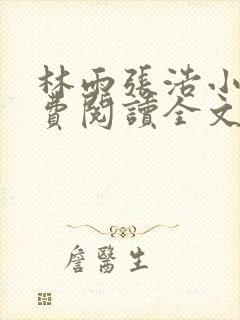 林雨張浩小
費閱讀全文
詹醫生